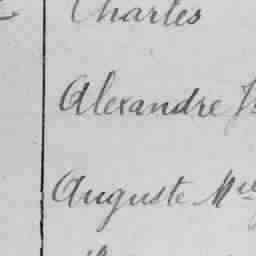 Charles
Alexandre
Auguste